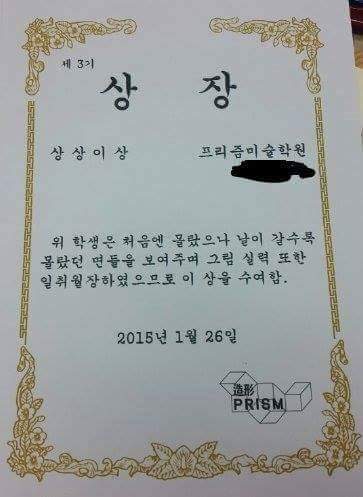 제 3기
상 장
상상이상 프리즘미술학원
위 학생은 처음엔 몰랐으나 날이 갈수록
몰랐던 면들을 보여주며 그림 실력 또한
일취월장하였으므로 이 상을 수여함.
2015년 1월 26일
造形
PRISM